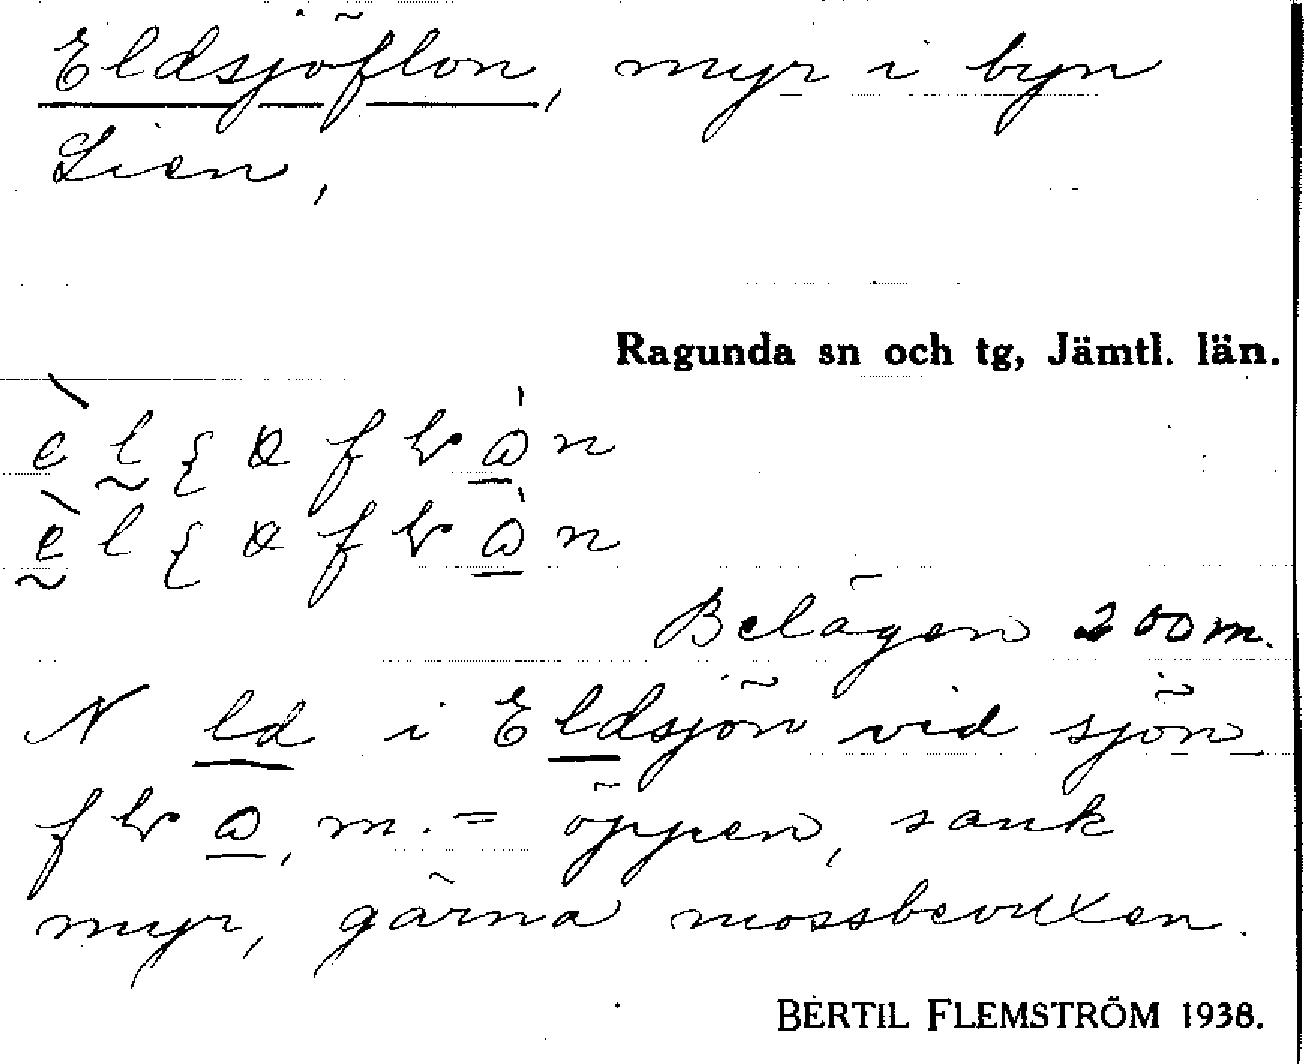 Eldsjöflon, myr i byn
Lien,
Ragunda sn och tg, Jämtl. län.
Belägen 200 m.
N ld i Eldsjön vid sjön
m. = öppen, sank
myr, gärna mossbevuxen.
BERTIL FLEMSTRÖM 1938.